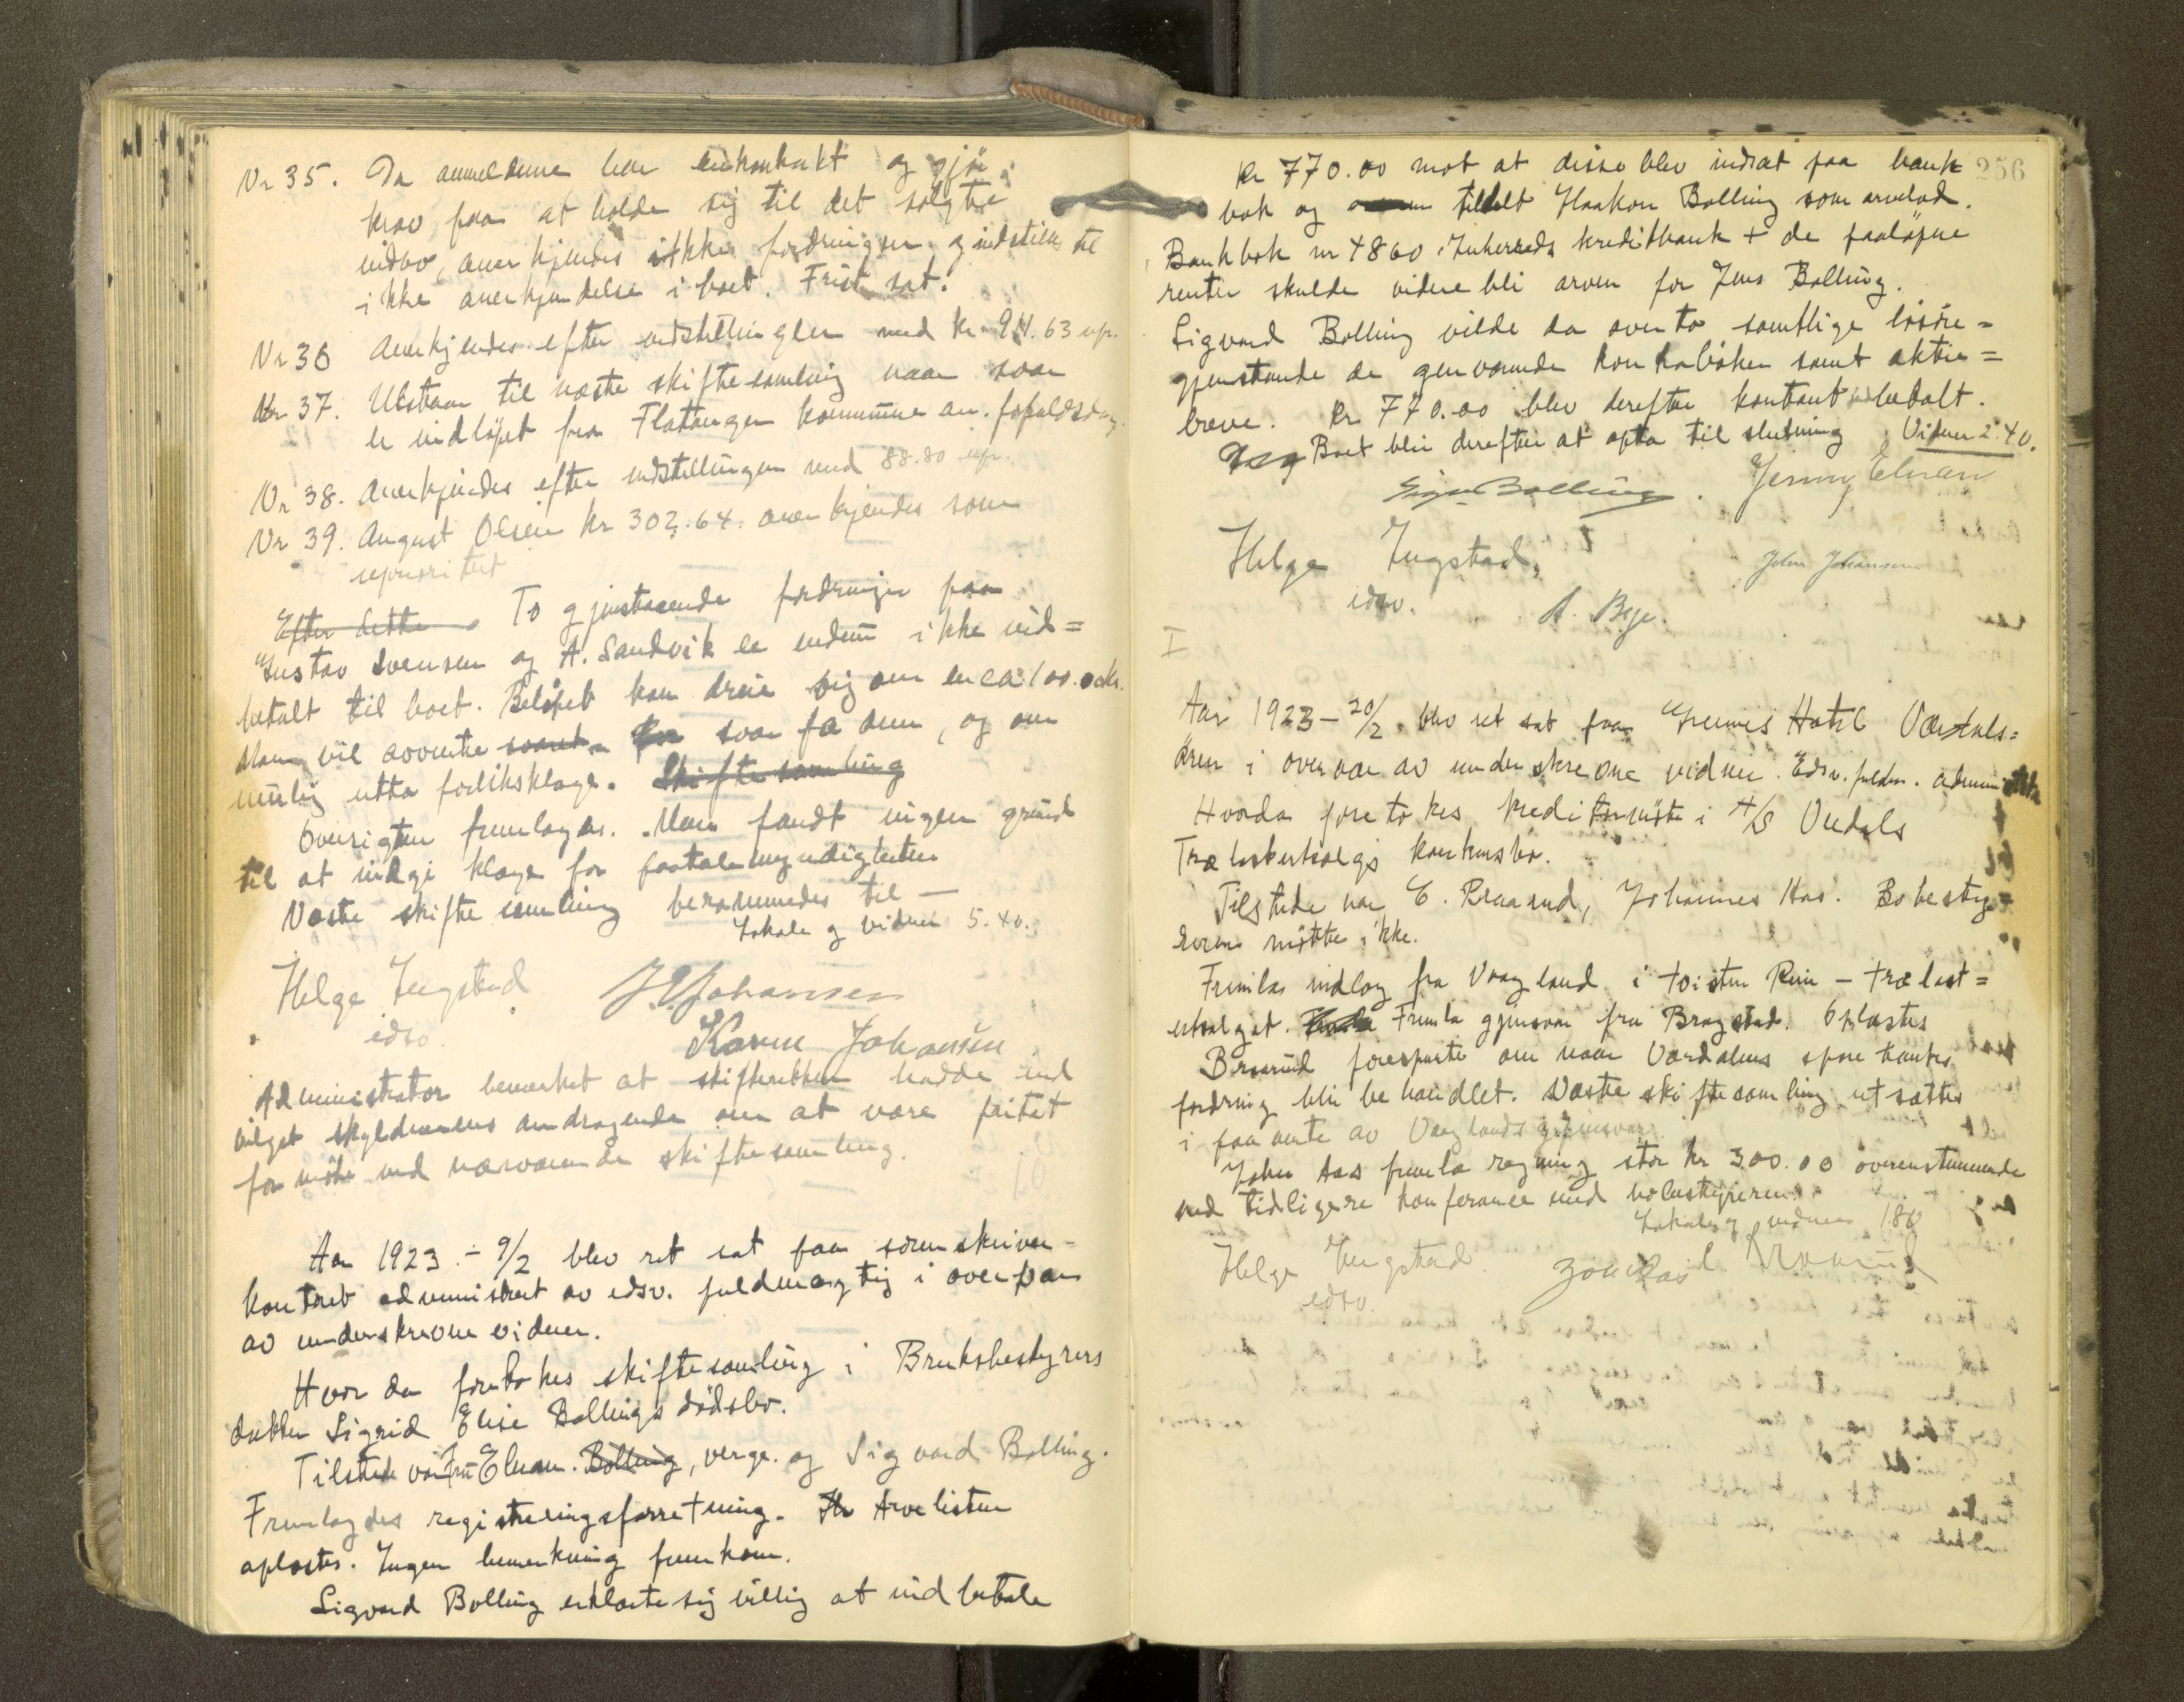 Nr 35. Da anmelderne har enkontrakt og gjör
krav paa at holde sig til det solgte
indbo, anerkjendes ikke fordringen og indstilles til
ikke anerkjendelse i boet. Frist sat.
Nr 36 Anerkjendes efter indstillingen med kr. 911.63 upr.
Nr 37. Utstaar til næste skiftesamling naar svar
er indløpet fra Flatanger kommune an. forfaldsdag.
Nr 38. Anerkjendes efter indstillingen med 88.80 upr.
Nr 39. August Olsen kr 302.64. anerkjendes som
uprioritert
Efter dette To gjenstaaende fordringer paa
Gustav Svensen og A. Sandvik er endnu ikke ind=
betalt til boet. Beløpet kan dreie sig om en ca. 100.0 kr.
Man vil avvente svaret svar fra dem, og om
mulig utta forliksklage. Skiftesamling
Oversigten fremlagdes. Man fandt ingen grund
til at indgi klage for paatalemyndigheten
Næste skiftesamling berammedes til —
Lokale og vidner 5.40.
Helge Ingstad J Johansen
edsv. Karen Johansen
Administrator bemerket at skifteretten hadde ind
vilget skyldnerens andragende om at være fritat
for møte ved nærværende skiftesamling.
Aar 1923 - 9/2 blev ret sat paa sorenskriver-
kontoret administrert av edsv. fuldmægtig i overvær
av underskrevne vidner.
Hvor da foretokes skiftesamling i Bruksbestyrers
datter Sigrid Elise Bollings dödsbo.
Tilstede var Fru Elnan. Bolling, verge. og Sigvard Bolling.
Fremlagdes registreringsforretning. Arvelisten
oplæstes. Ingen bemerkning fremkom.
Sigvard Bolling erklærte sig villig at indbetale
256
kr 770.00 mot at disse blev indsat paa bank
bok og tildelt Haakon Bolling som arvelod.
Bankbok nr 4860 i Inherreds kreditbank + de paaløpne
renter skulde videre bli arven for Jens Bolling.
Sigvard Bolling vilde da overta samtlige løsøre=
gjenstande de genværende bankbøker samt aktie=
breve. Kr 770.00 blev derefter kontant indbetalt.
Boet blir derefter at opta til slutning. Vidner 2.40.
Sigv Bolling. Jenny Elnan
Helge Ingstad, John Johansen
edsv. A. Bye.
I
Aar 1923 - 20/2 blev ret sat paa Hotel Værdals=
ören i overvær av underskrevne vidner. Edsv. fuldm. administrerte
Hvorda foretokes kreditormøte i A/S Verdals
Trælastutsalgs konkursbo.
Tilstede var E. Braarud, Johannes Aas. Bobesty=
reren møtte ikke.
Fremlas indlæg fra Vaagland i tvisten Rein - trælast=
utsalget. Fremla gjensvar fra Bragstad. Oplæstes
Braarud forespurte om naar Værdalens sparebanks
fordring blir behandlet. Næste skiftesamling utsættes
i paavente av Vaaglands gjensvar.
Johs Aas fremla regning stor kr 300.00 overenstemmende
med tidligere konferance med bobestyreren.
Lokale og vidner 1.80
Helge Ingstad. Braarud
edsv.